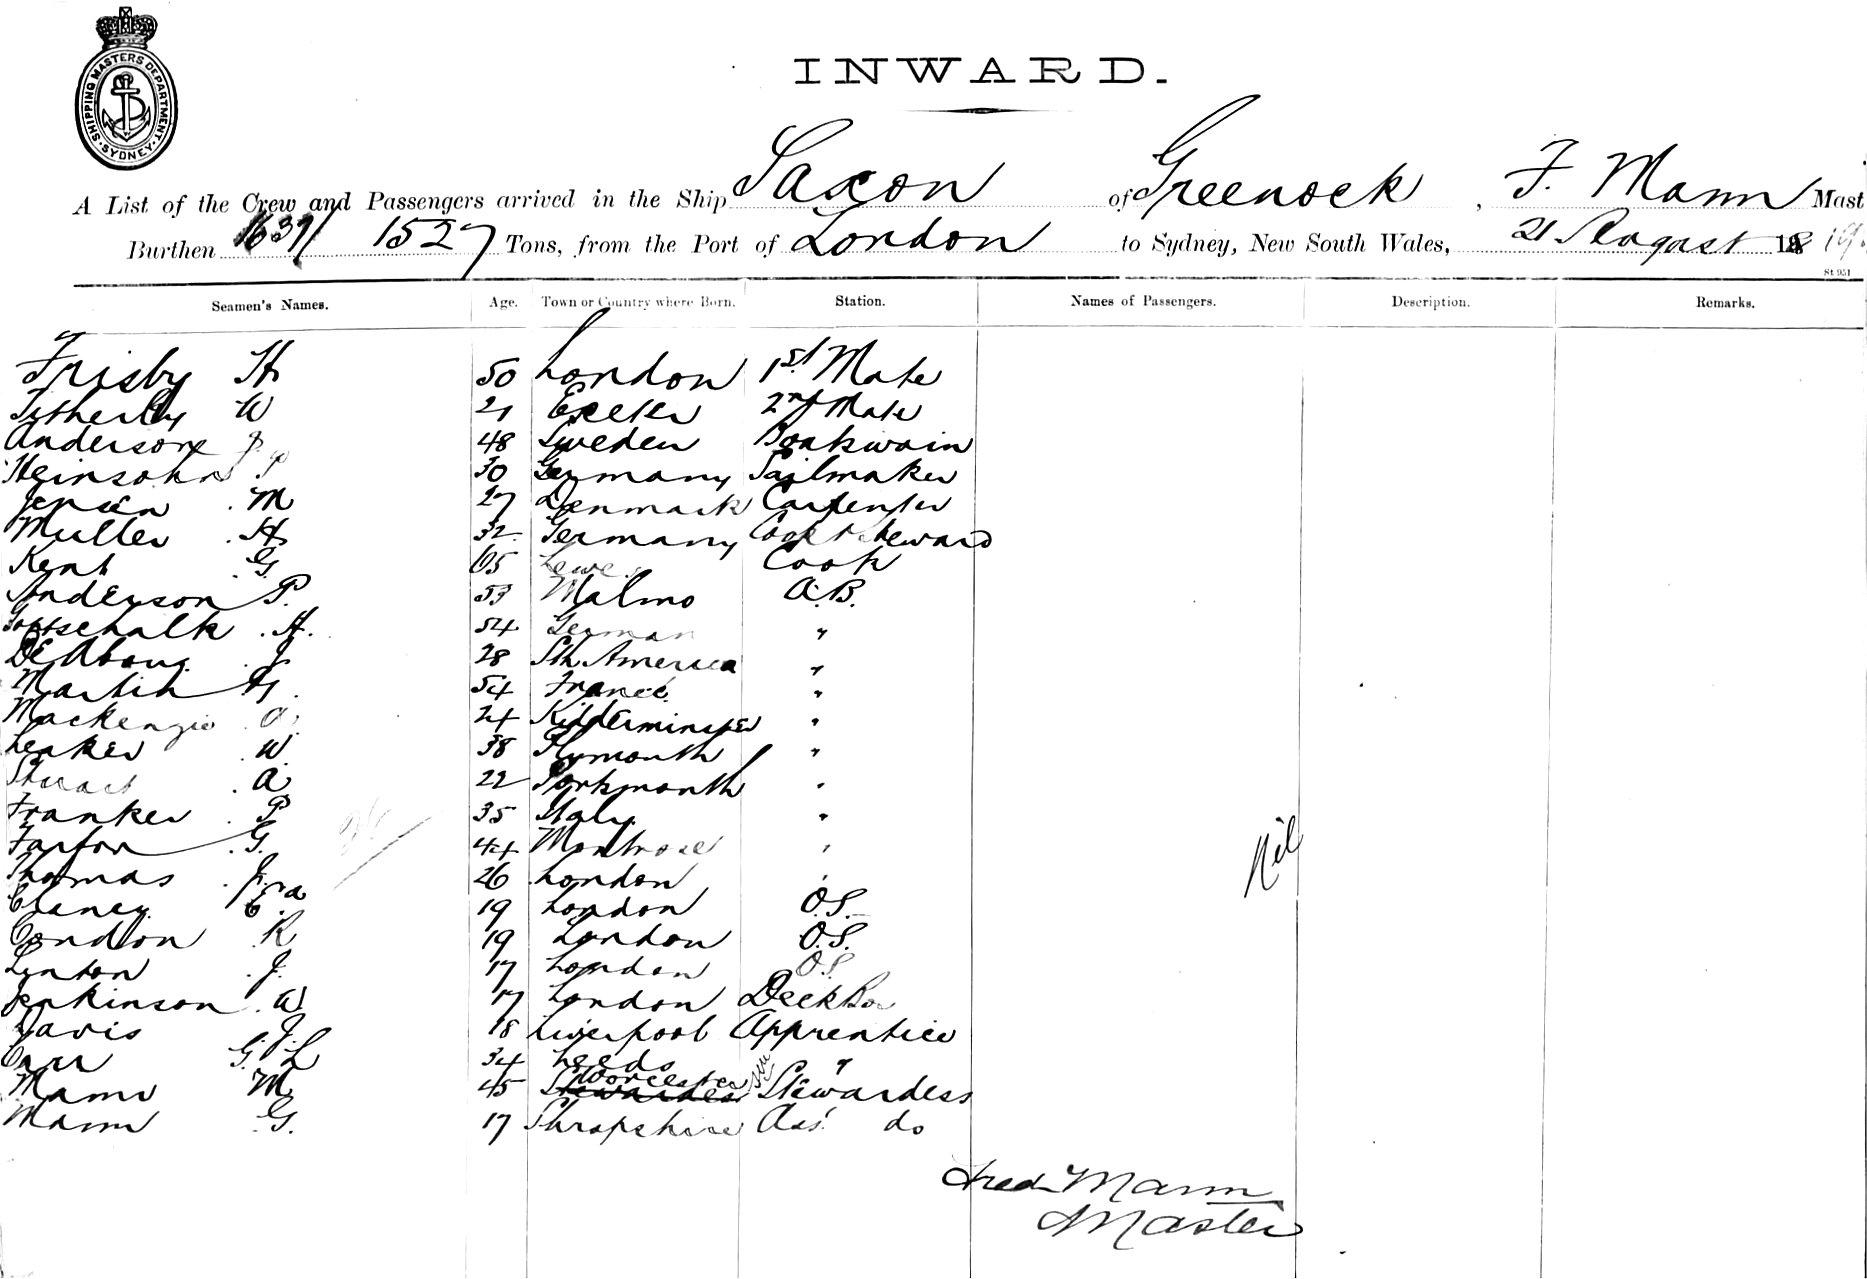 SHIPPING MASTERS DEPARTMENT
SYDNEY
INWARD.
A List of the Crew and Passengers arrived in the Ship Saxon of Greenock, F. Mann Mast
Burthen 1527 Tons, from the Port of London to Sydney, New South Wales, 21 August 18
St 951
Seamen's Names. Age. Town or Country where Born. Station. Names of Passengers. Description. Remarks.
Frisby H 50 London 1st Mate
Titherly W 21 Exeter 2nd Mate
Anderson J 48 Sweden Boatswain
Heinsohn P 30 Germany Sailmaker
Jensen M 27 Denmark Carpenter
Muller H 32 Germany Cook & Steward
Kent G 65 Lewes Cook
Anderson P. 53 Malmo A.B.
Gottschalk H. 54 German "
J 28 Sth America "
Martin H. 54 France "
Mackenzie A. 24 Kidderminster "
Leaker W 38 Plymouth "
Stuart A 22 Portsmouth "
Franker P 35 Italy "
Farfor G. 44 Montrose "
Thomas J. 26 London "
E.A 19 London O.S.
Condlon R 19 London O.S.
Lenton J. 17 London O.S.
Jenkinson W 17 London Deck Boy
Davis J. 18 Liverpool Apprentice
Carr G. L 34 Leeds "
Mann M 45 Stewardess Worcester Stewardess
Mann G. 17 Shropshire Ass: do
Nil
Fred Mann
Master